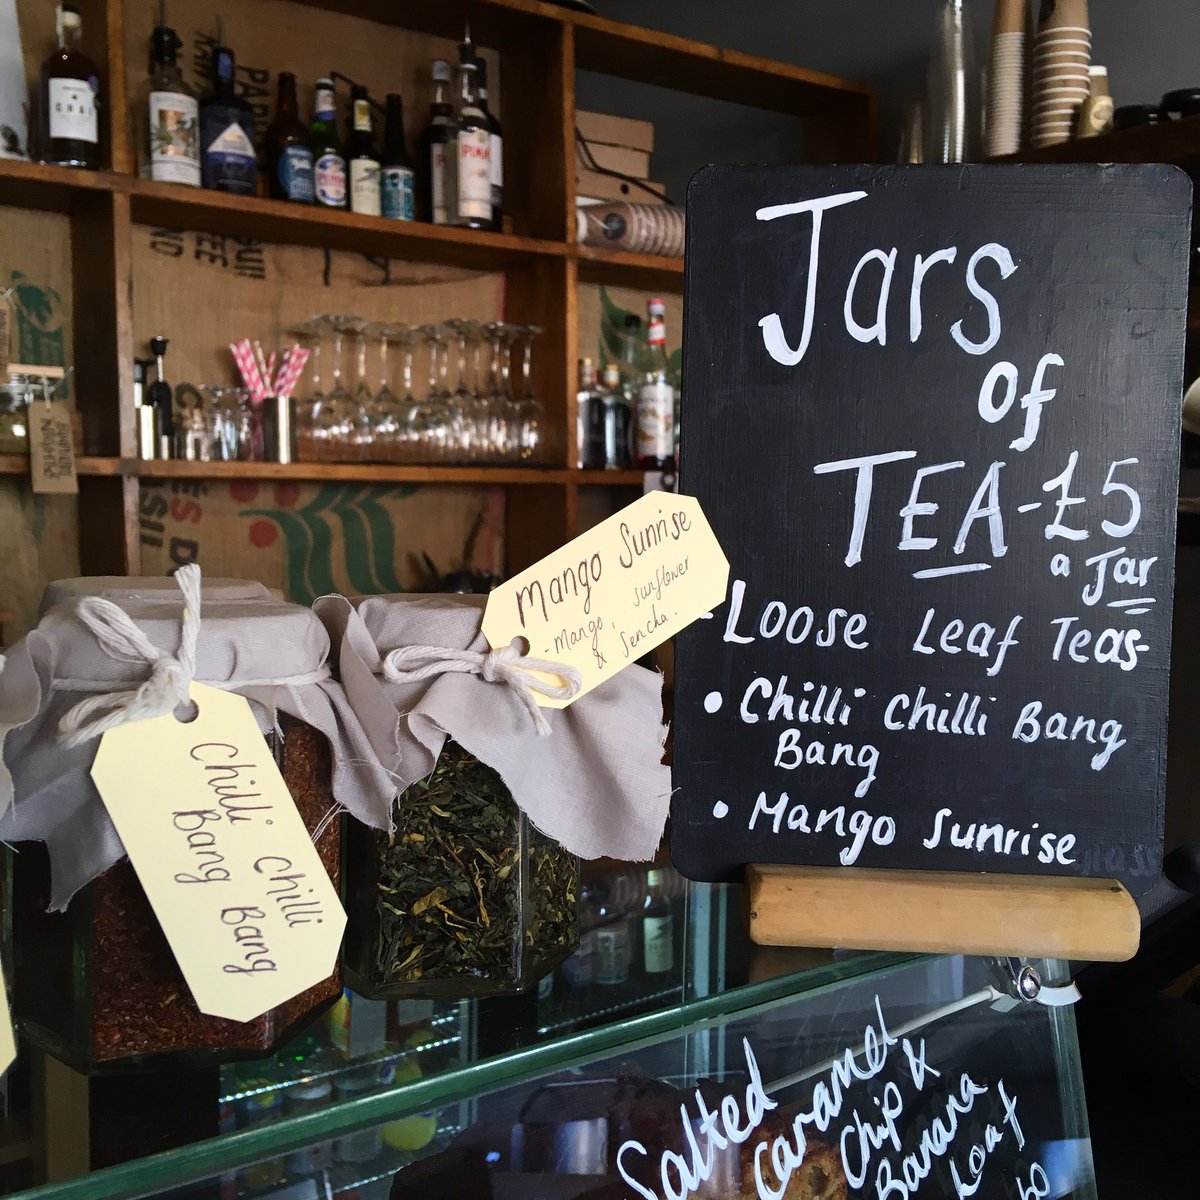 Jars
of
TEA-£5
a Jar
-Loose Leaf Teas-
• Chilli Chilli Bang
Bang
• Mango Sunrise
Mango Sunrise
-Mango, sunflower
& Sencha.
Chilli Chilli
Bang Bang
Salted
Caramel
Chip &
Banana
Loaf